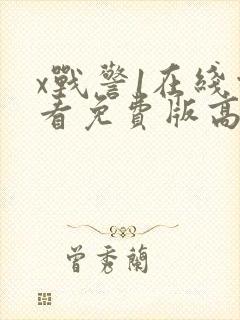 x戰警1在綫
看免費版高
曾秀蘭